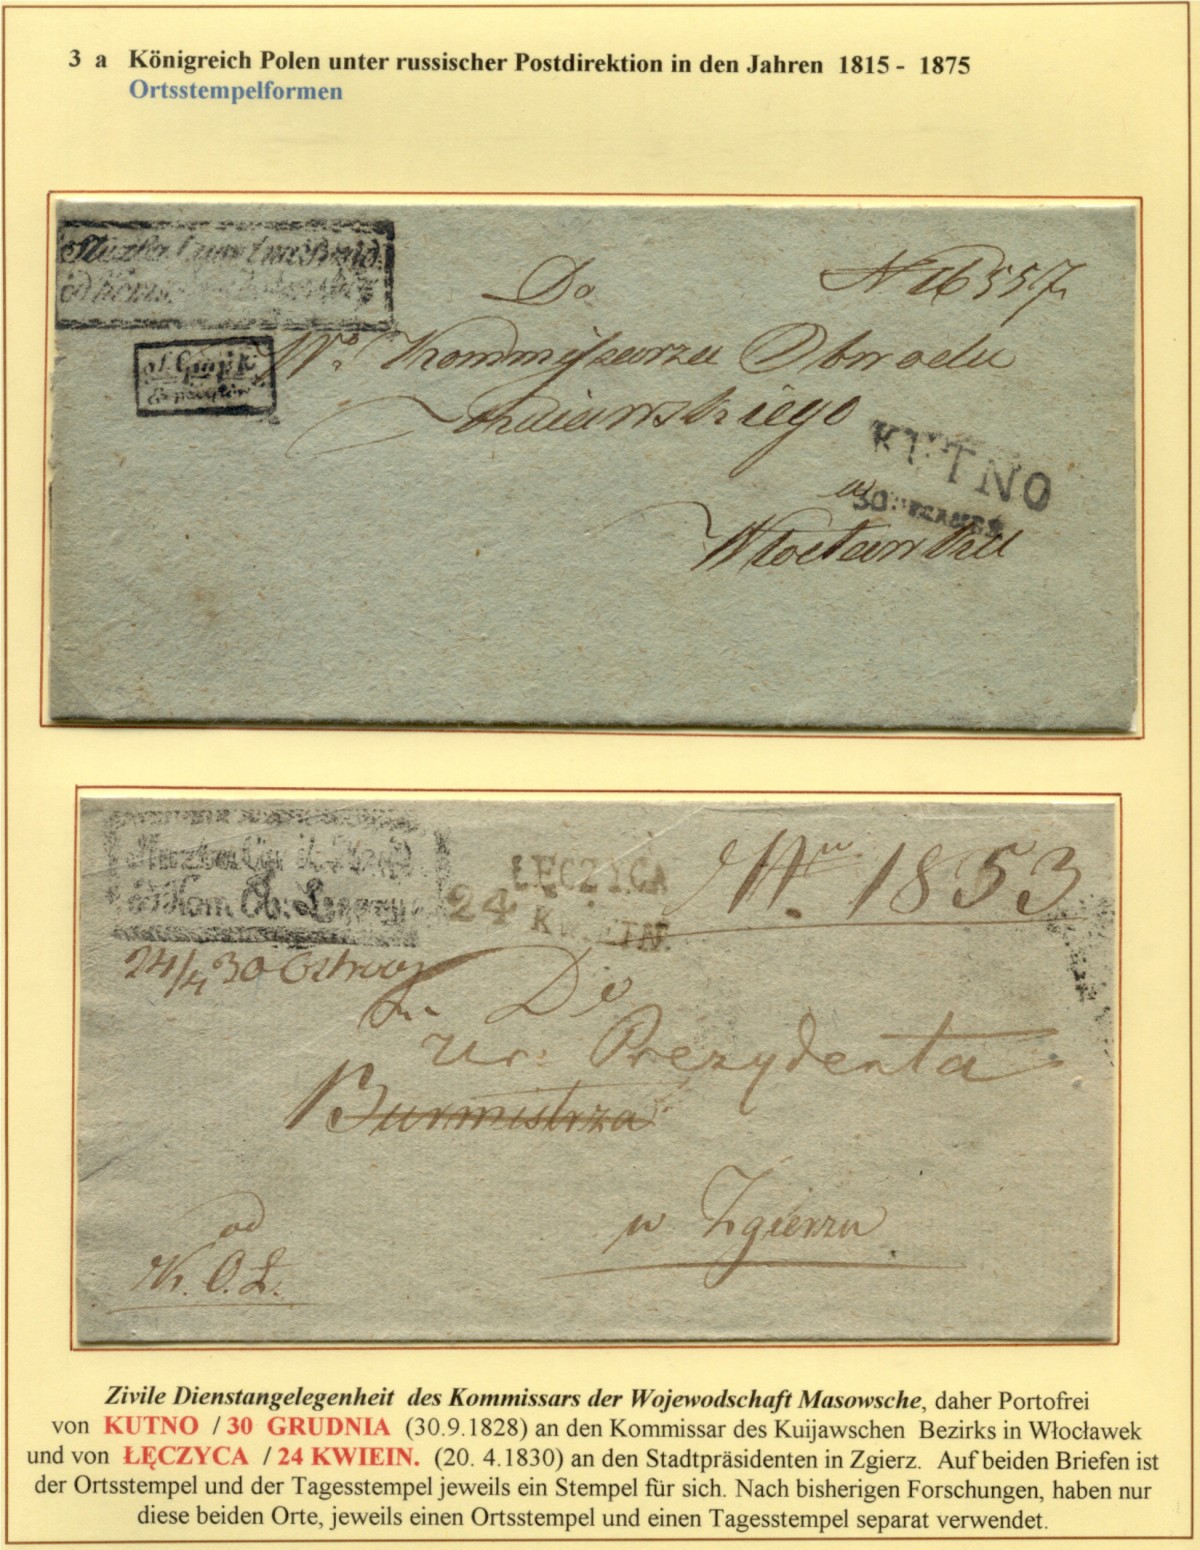 3 a Königreich Polen unter russischer Postdirektion in den Jahren 1815 - 1875
Ortsstempelformen
Do
N 16557
of. Gmin
W° Kommissarza Obwodu
Kuiawskiego
KUTNO
w
30
Włocławku
Służba
od Kom. Ob:
ŁĘCZYCA
24 KWIETN.
N. 1853
24/4 30
Do
Ur: Prezydenta
Burmistrza
w Zgierzu
od
K. O. Ł.
Zivile Dienstangelegenheit des Kommissars der Wojewodschaft Masowsche, daher Portofrei
von KUTNO / 30 GRUDNIA (30.9.1828) an den Kommissar des Kuijawschen Bezirks in Włocławek
und von ŁĘCZYCA / 24 KWIEIN. (20. 4.1830) an den Stadtpräsidenten in Zgierz. Auf beiden Briefen ist
der Ortsstempel und der Tagesstempel jeweils ein Stempel für sich. Nach bisherigen Forschungen, haben nur
diese beiden Orte, jeweils einen Ortsstempel und einen Tagesstempel separat verwendet.